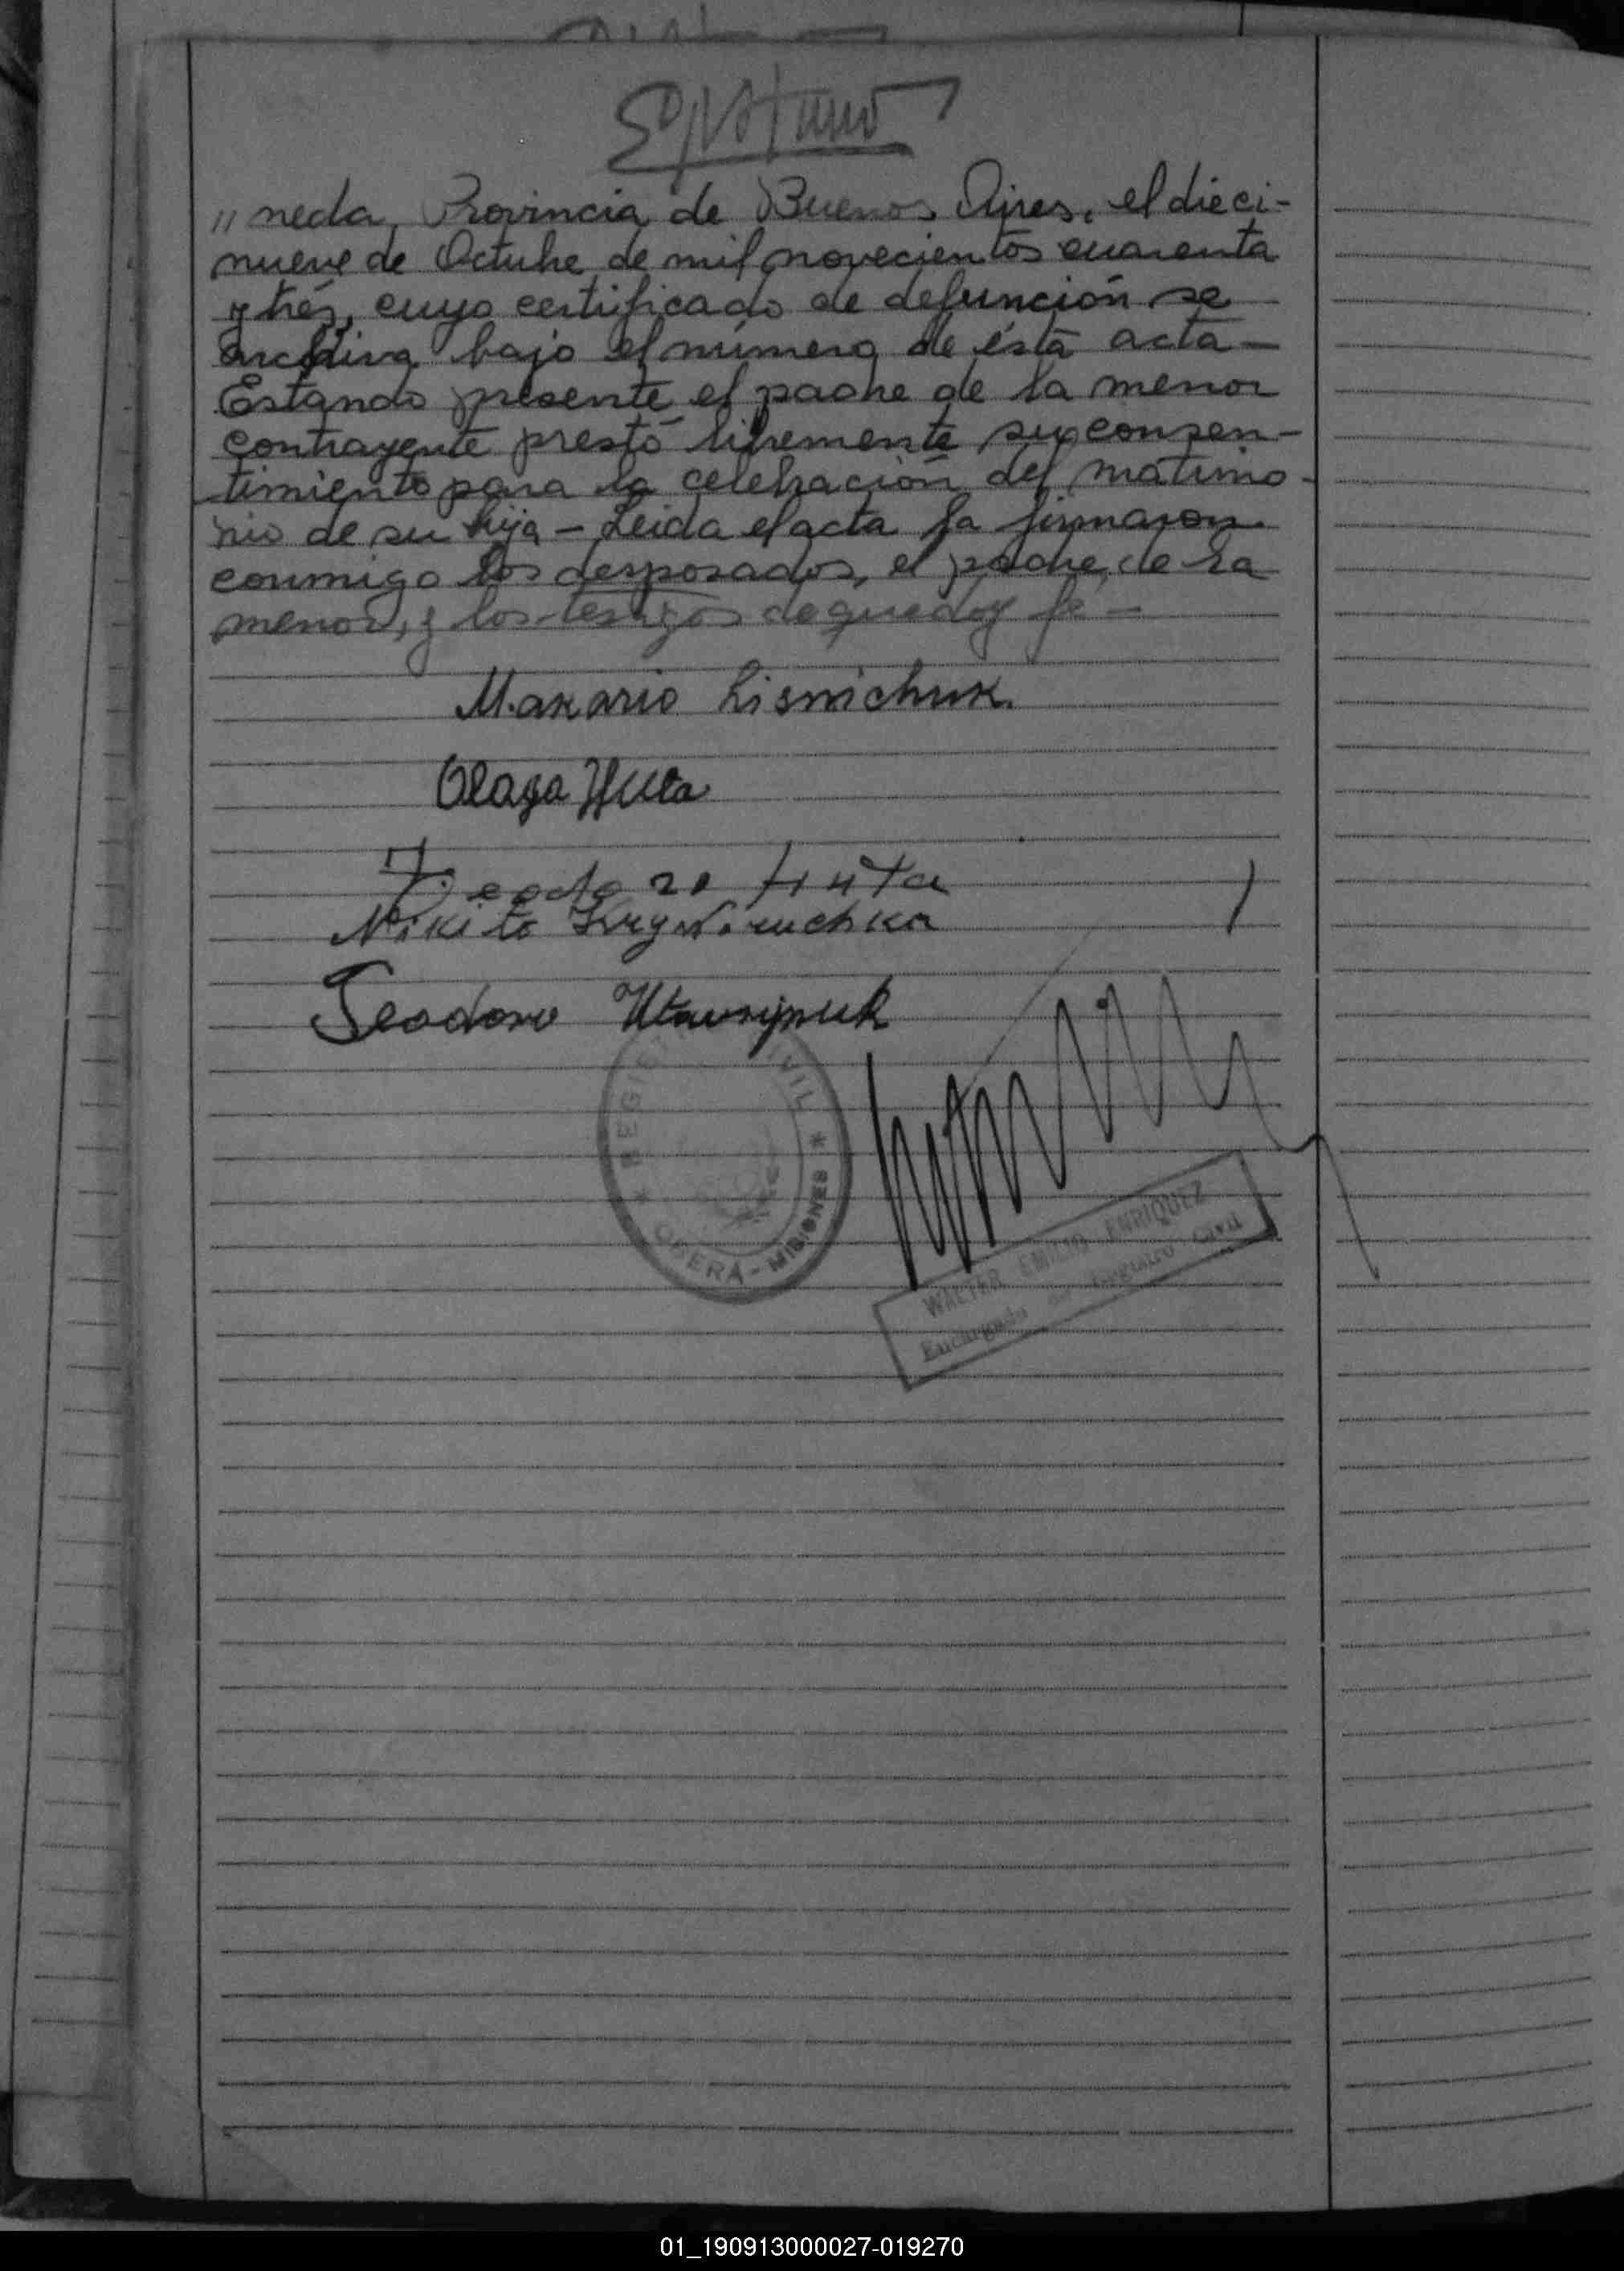 "neda, Provincia de Buenos Aires, el dieci-
nueve de Octubre de mil novecientos cuarenta
y trés, cuyo certificado de defunción se
archiva bajo el número de ésta acta—
Estando presente el padre de la menor
contrayente prestó libremente su consen-
timiento para la celebración del matimo-
nio de su hija – Leida el acta la firmaron
conmigo los desposados, el padre de la
menor, y los testigos de que doy fé —
Makario Lisnichuk.
Olaga Huta
Teodoro Huta
Nikita Krywaruchka
Teodoro
REGISTRO CIVIL
OBERA - MISIONES
WALTER EMILIO ENRIQUEZ
Encargado del Registro Civil
01_190913000027-019270